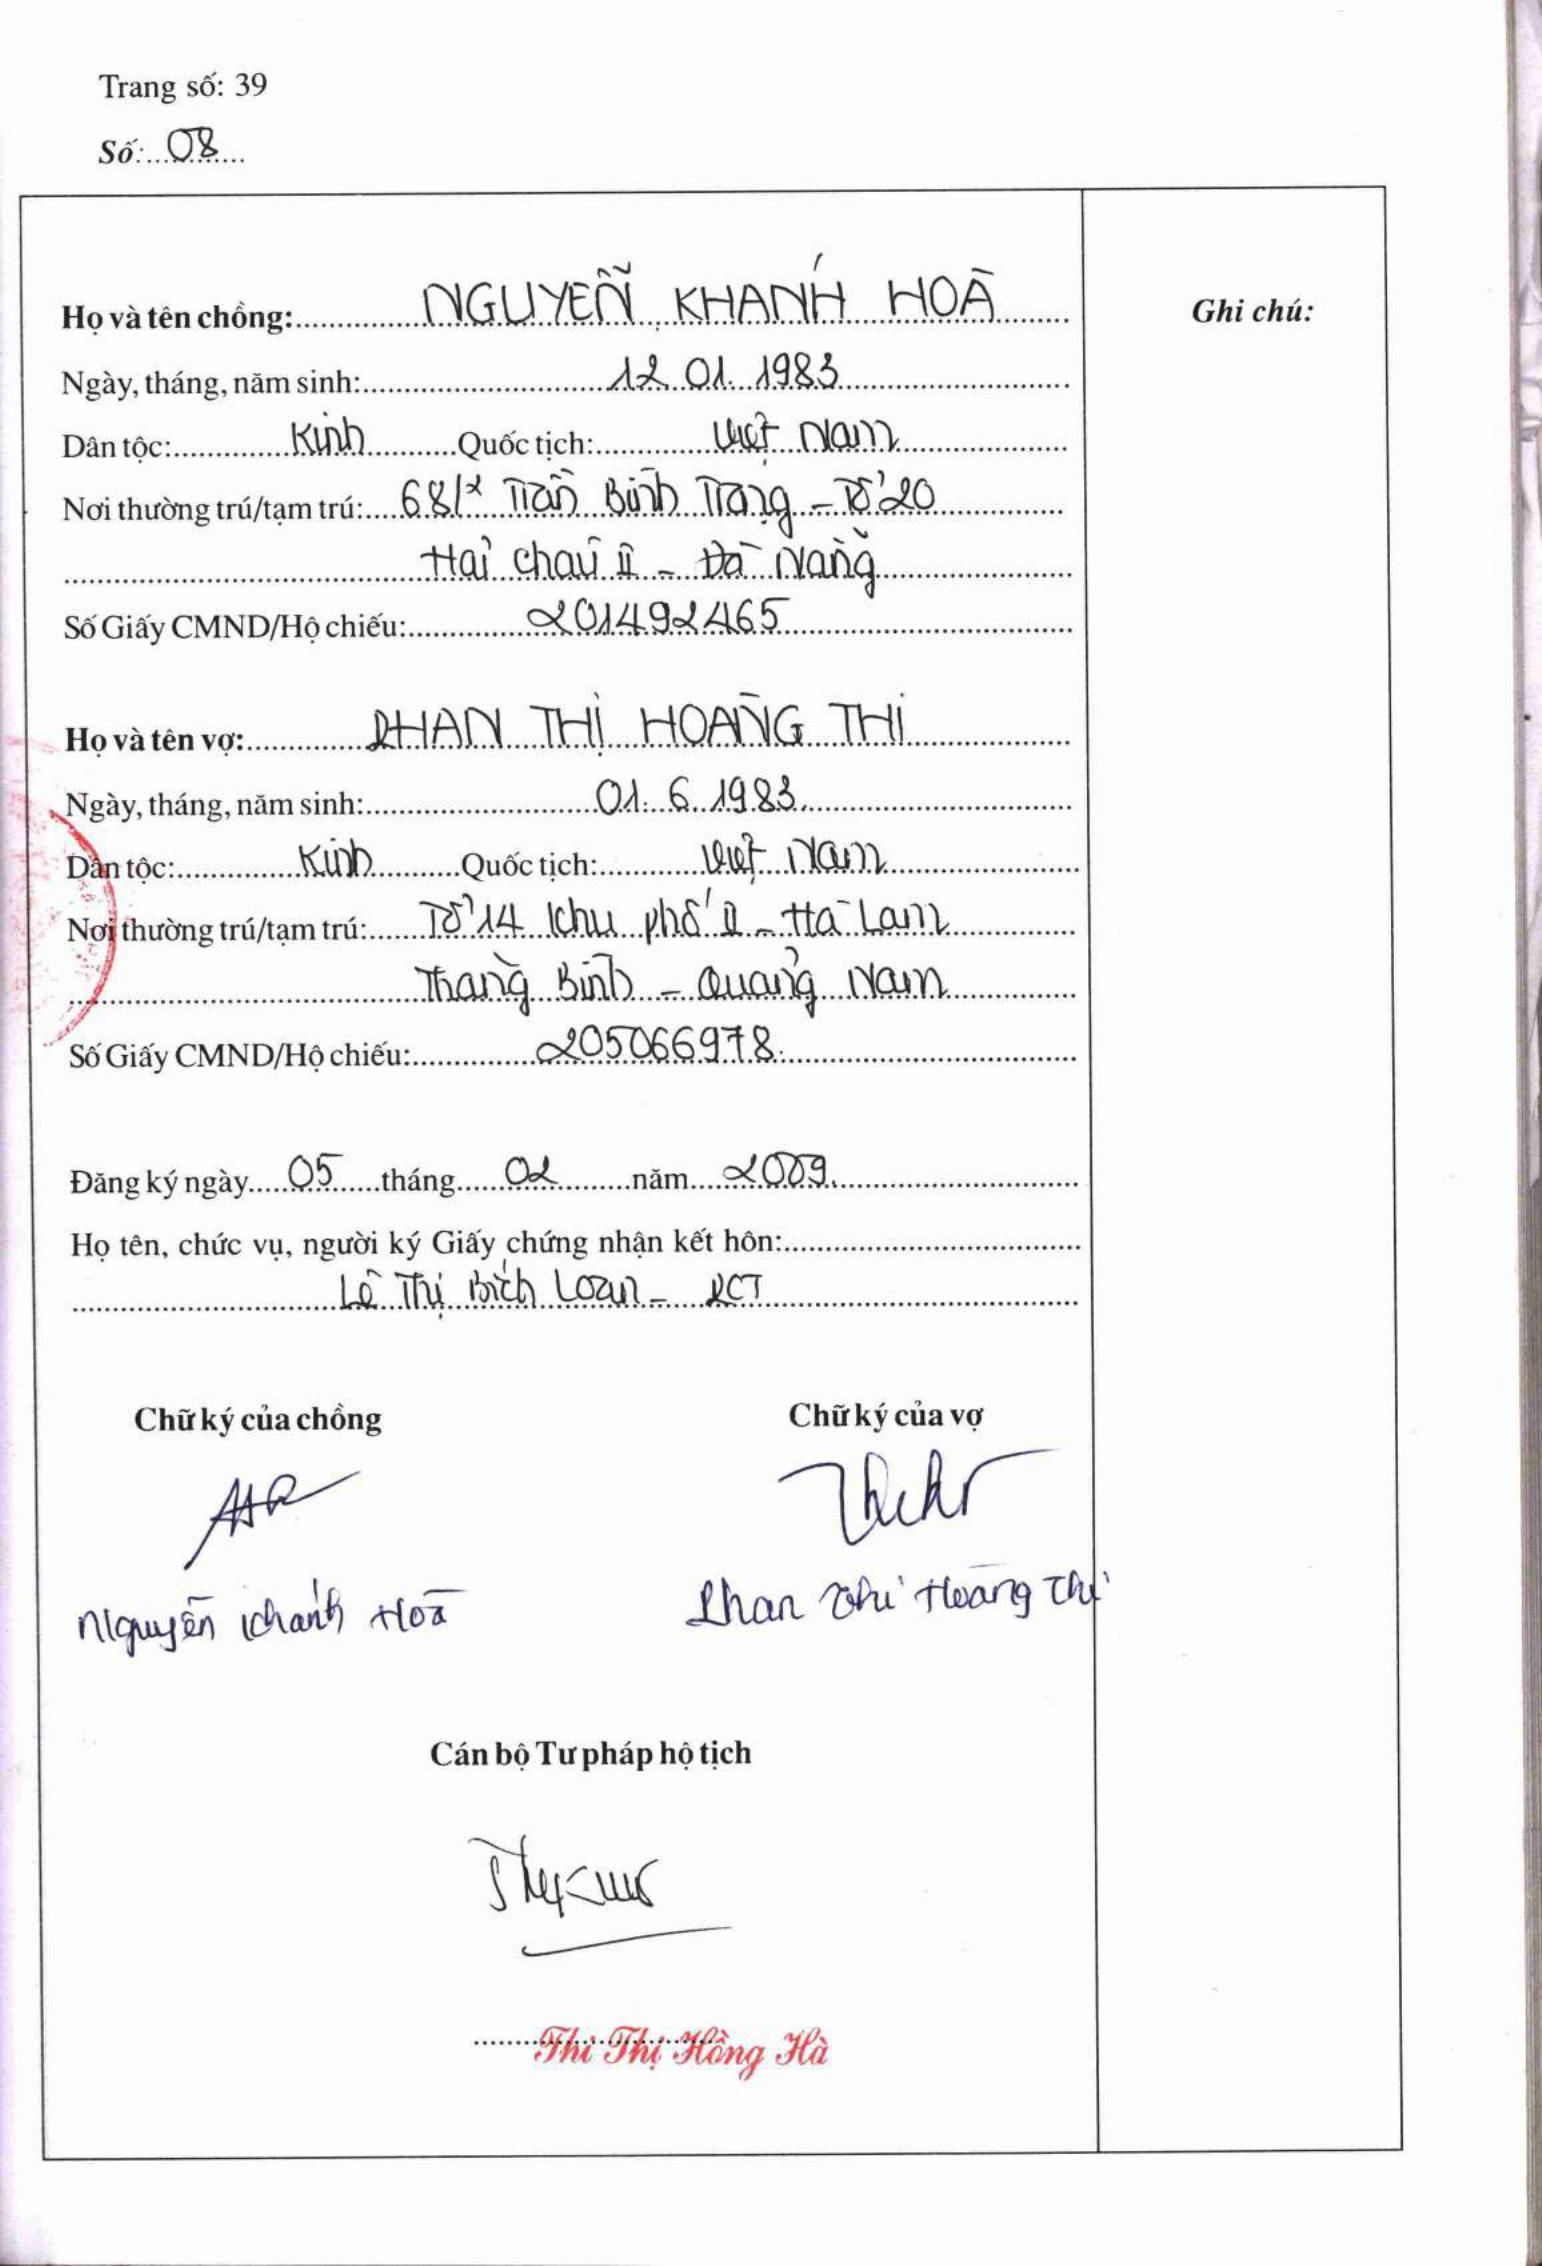 Trang số: 39
Số: 08
Họ và tên chồng: NGUYỄN KHÁNH HOÀ
Ghi chú:
Ngày, tháng, năm sinh: 12.01.1983
Dân tộc: Kinh Quốc tịch: Việt Nam
Nơi thường trú/tạm trú: 68/2 Trần Bình Trọng - Tổ 20
Hải Châu II - Đà Nẵng
Số Giấy CMND/Hộ chiếu: 201492465
Họ và tên vợ: PHAN THỊ HOÀNG THI
Ngày, tháng, năm sinh: 01.6.1983
Dân tộc: Kinh Quốc tịch: Việt Nam
Nơi thường trú/tạm trú: Tổ 14 khu phố II - Hà Lam
Thăng Bình - Quảng Nam
Số Giấy CMND/Hộ chiếu: 205066978
Đăng ký ngày 05 tháng 02 năm 2009
Họ tên, chức vụ, người ký Giấy chứng nhận kết hôn:
Lê Thị Bích Loan - PCT
Chữ ký của chồng Chữ ký của vợ
Nguyễn Khánh Hoà Phan Thi Hoàng Thi
Cán bộ Tư pháp hộ tịch
Thi Thị Hồng Hà